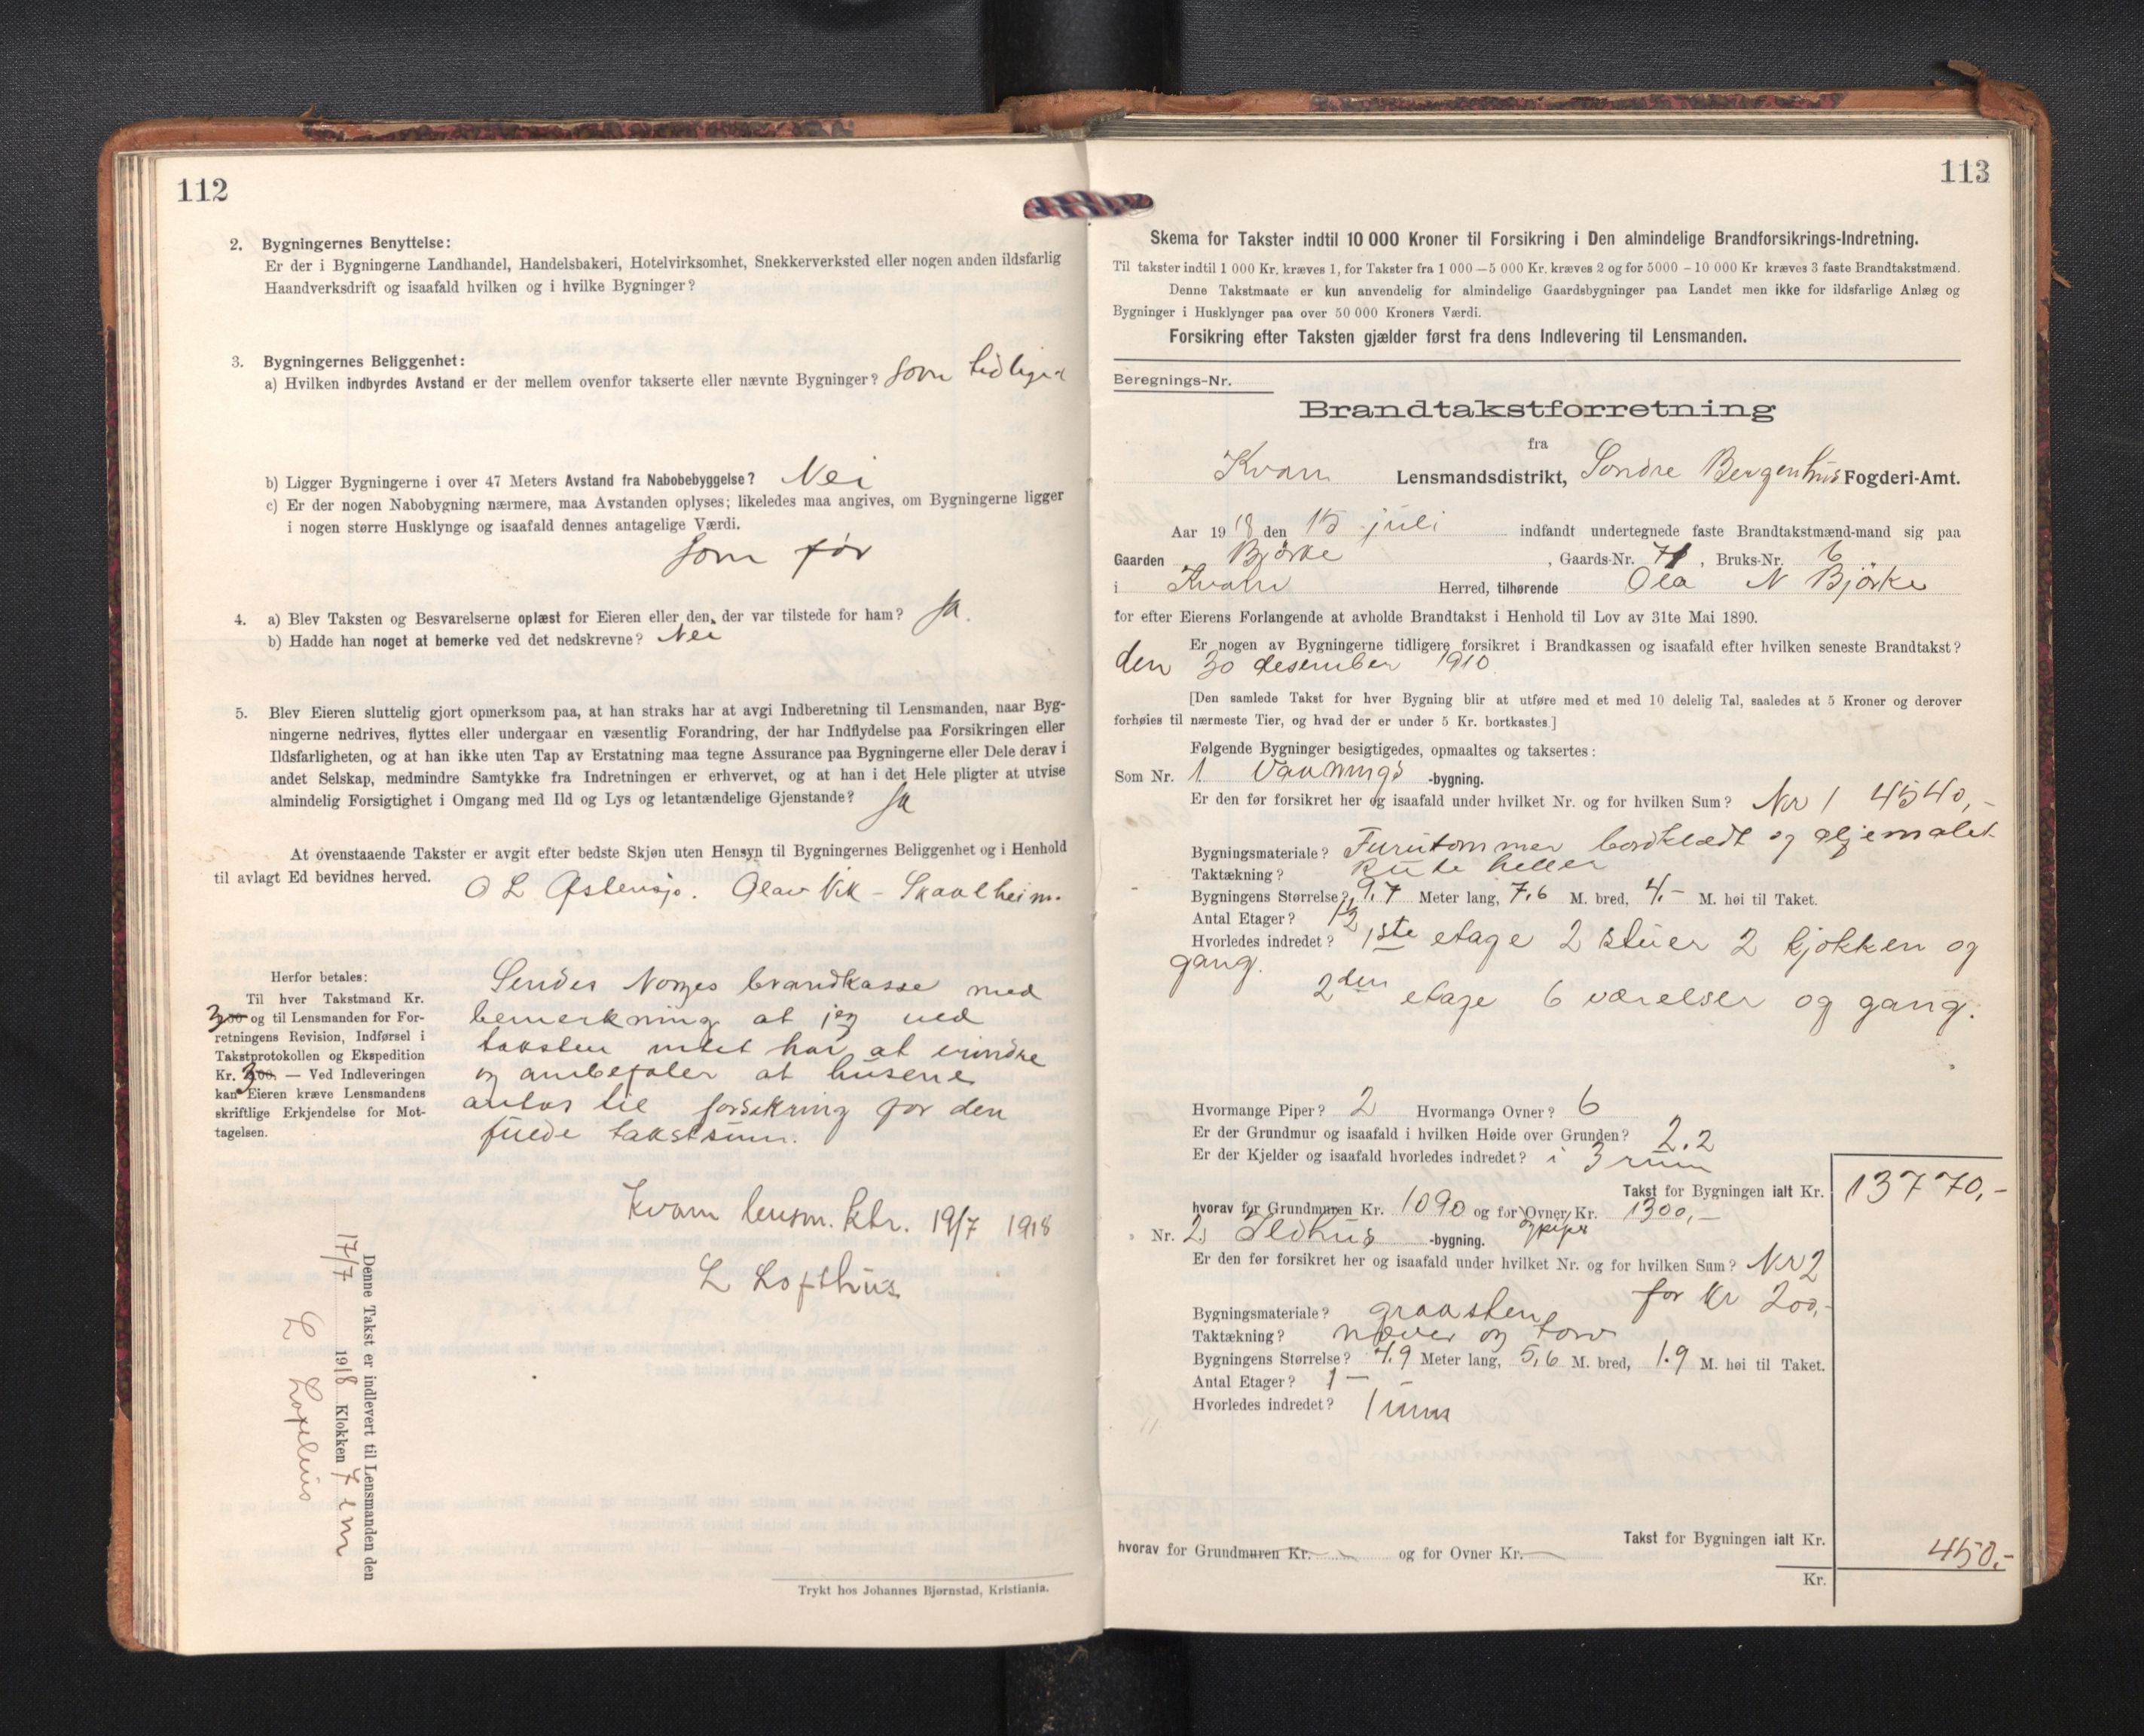 112
2. Bygningernes Benyttelse:
Er der i Bygningerne Landhandel, Handelsbakeri, Hotelvirksomhet, Snekkerverksted eller nogen anden ildsfarlig
Haandverksdrift og isaafald hvilken og i hvilke Bygninger?
3. Bygningernes Beliggenhet:
a) Hvilken indbyrdes Avstand er der mellem ovenfor takserte eller nævnte Bygninger? som tidliger
b) Ligger Bygningerne i over 47 Meters Avstand fra Nabobebyggelse? Nei
c) Er der nogen Nabobygning nærmere, maa Avstanden oplyses; likeledes maa angives, om Bygningerne ligger
i nogen større Husklynge og isaafald dennes antagelige Værdi.
som før
4. a) Blev Taksten og Besvarelserne oplæst for Eieren eller den, der var tilstede for ham? ja.
b) Hadde han noget at bemerke ved det nedskrevne? Nei
5. Blev Eieren sluttelig gjort opmerksom paa, at han straks har at avgi Indberetning til Lensmanden, naar Byg-
ningerne nedrives, flyttes eller undergaar en væsentlig Forandring, der har Indflydelse paa Forsikringen eller
Ildsfarligheten, og at han ikke uten Tap av Erstatning maa tegne Assurance paa Bygningerne eller Dele derav i
andet Selskap, medmindre Samtykke fra Indretningen er erhvervet, og at han i det Hele pligter at utvise
almindelig Forsigtighet i Omgang med Ild og Lys og letantændelige Gjenstande? ja
At ovenstaaende Takster er avgit efter bedste Skjøn uten Hensyn til Bygningernes Beliggenhet og i Henhold
til avlagt Ed bevidnes herved.
O L Østensjø. Olav Vik - Skaalheim.
Herfor betales:
Til hver Takstmand Kr.
3 og til Lensmanden for For-
retningens Revision, Indførsel i
Takstprotokollen og Ekspedition
Kr. 3 — Ved Indleveringen
kan Eieren kræve Lensmandens
skriftlige Erkjendelse for Mot-
tagelsen.
Sendes Norges brandkasse med
bemerkning at jeg ved
taksten intet har at erindre
og anbefaler at husene
antas til forsikring for den
fulde takstsum.
Kvam lensm. ktr. 19/7 1918
L Lofthus
Denne Takst er indlevert til Lensmanden den
17/7 1918 Klokken 7 em
L Lofthus
Trykt hos Johannes Bjørnstad, Kristiania.
113
Skema for Takster indtil 10 000 Kroner til Forsikring i Den almindelige Brandforsikrings-Indretning.
Til takster indtil 1 000 Kr. kræves 1, for Takster fra 1 000 —5 000 Kr. kræves 2 og for 5000 – 10 000 Kr kræves 3 faste Brandtakstmænd.
Denne Takstmaate er kun anvendelig for almindelige Gaardsbygninger paa Landet men ikke for ildsfarlige Anlæg og
Bygninger i Husklynger paa over 50 000 Kroners Værdi.
Forsikring efter Taksten gjælder først fra dens Indlevering til Lensmanden.
Beregnings-Nr.
Brandtakstforretning
fra
Kvam Lensmandsdistrikt, Søndre Bergenhus Fogderi-Amt.
Aar 1918 den 15 juli indfandt undertegnede faste Brandtakstmænd-mand sig paa
Gaarden Bjørke, Gaards-Nr. 71, Bruks-Nr. 6
i Kvam Herred, tilhørende Ola N Bjørke
for efter Eierens Forlangende at avholde Brandtakst i Henhold til Lov av 31te Mai 1890.
Er nogen av Bygningerne tidligere forsikret i Brandkassen og isaafald efter hvilken seneste Brandtakst?
den 30 desember 1910
[Den samlede Takst for hver Bygning blir at utføre med et med 10 delelig Tal, saaledes at 5 Kroner og derover
forhøies til nærmeste Tier, og hvad der er under 5 Kr. bortkastes.]
Følgende Bygninger besigtigedes, opmaaltes og taksertes:
Som Nr. 1 Vaanings -bygning.
Er den før forsikret her og isaafald under hvilket Nr. og for hvilken Sum? Nr 1 4540,-
Bygningsmateriale? Furutømmer bordklædt og oljemalet
Taktækning? Rute heller
Bygningens Størrelse? 9,7 Meter lang, 7,6 M. bred, 4,- M. høi til Taket.
Antal Etager? 1½
Hvorledes indredet? 1ste etage 2 stuer 2 kjøkken og
gang.
2den etage 6 værelser og gang.
Hvormange Piper? 2 Hvormange Ovner? 6
Er der Grundmur og isaafald i hvilken Høide over Grunden? 2.2
Er der Kjelder og isaafald hvorledes indredet? i 3 rum
Takst for Bygningen ialt Kr. 13770,-
hvorav for Grundmuren Kr. 1090 og for Ovner Kr. 1300,-
og piper
Nr. 2. Ildhus -bygning.
Er den før forsikret her og isaafald under hvilket Nr. og for hvilken Sum? Nr 2
for Kr 200,-
Bygningsmateriale? graasten
Taktækning? næver og torv
Bygningens Størrelse? 7.9 Meter lang, 5,6 M. bred, 1.9 M. høi til Taket.
Antal Etager? 1 —
Hvorledes indredet? 1 rum
Takst for Bygningen ialt Kr. 450,-
hvorav for Grundmuren Kr. — og for Ovner Kr. —
Kr.